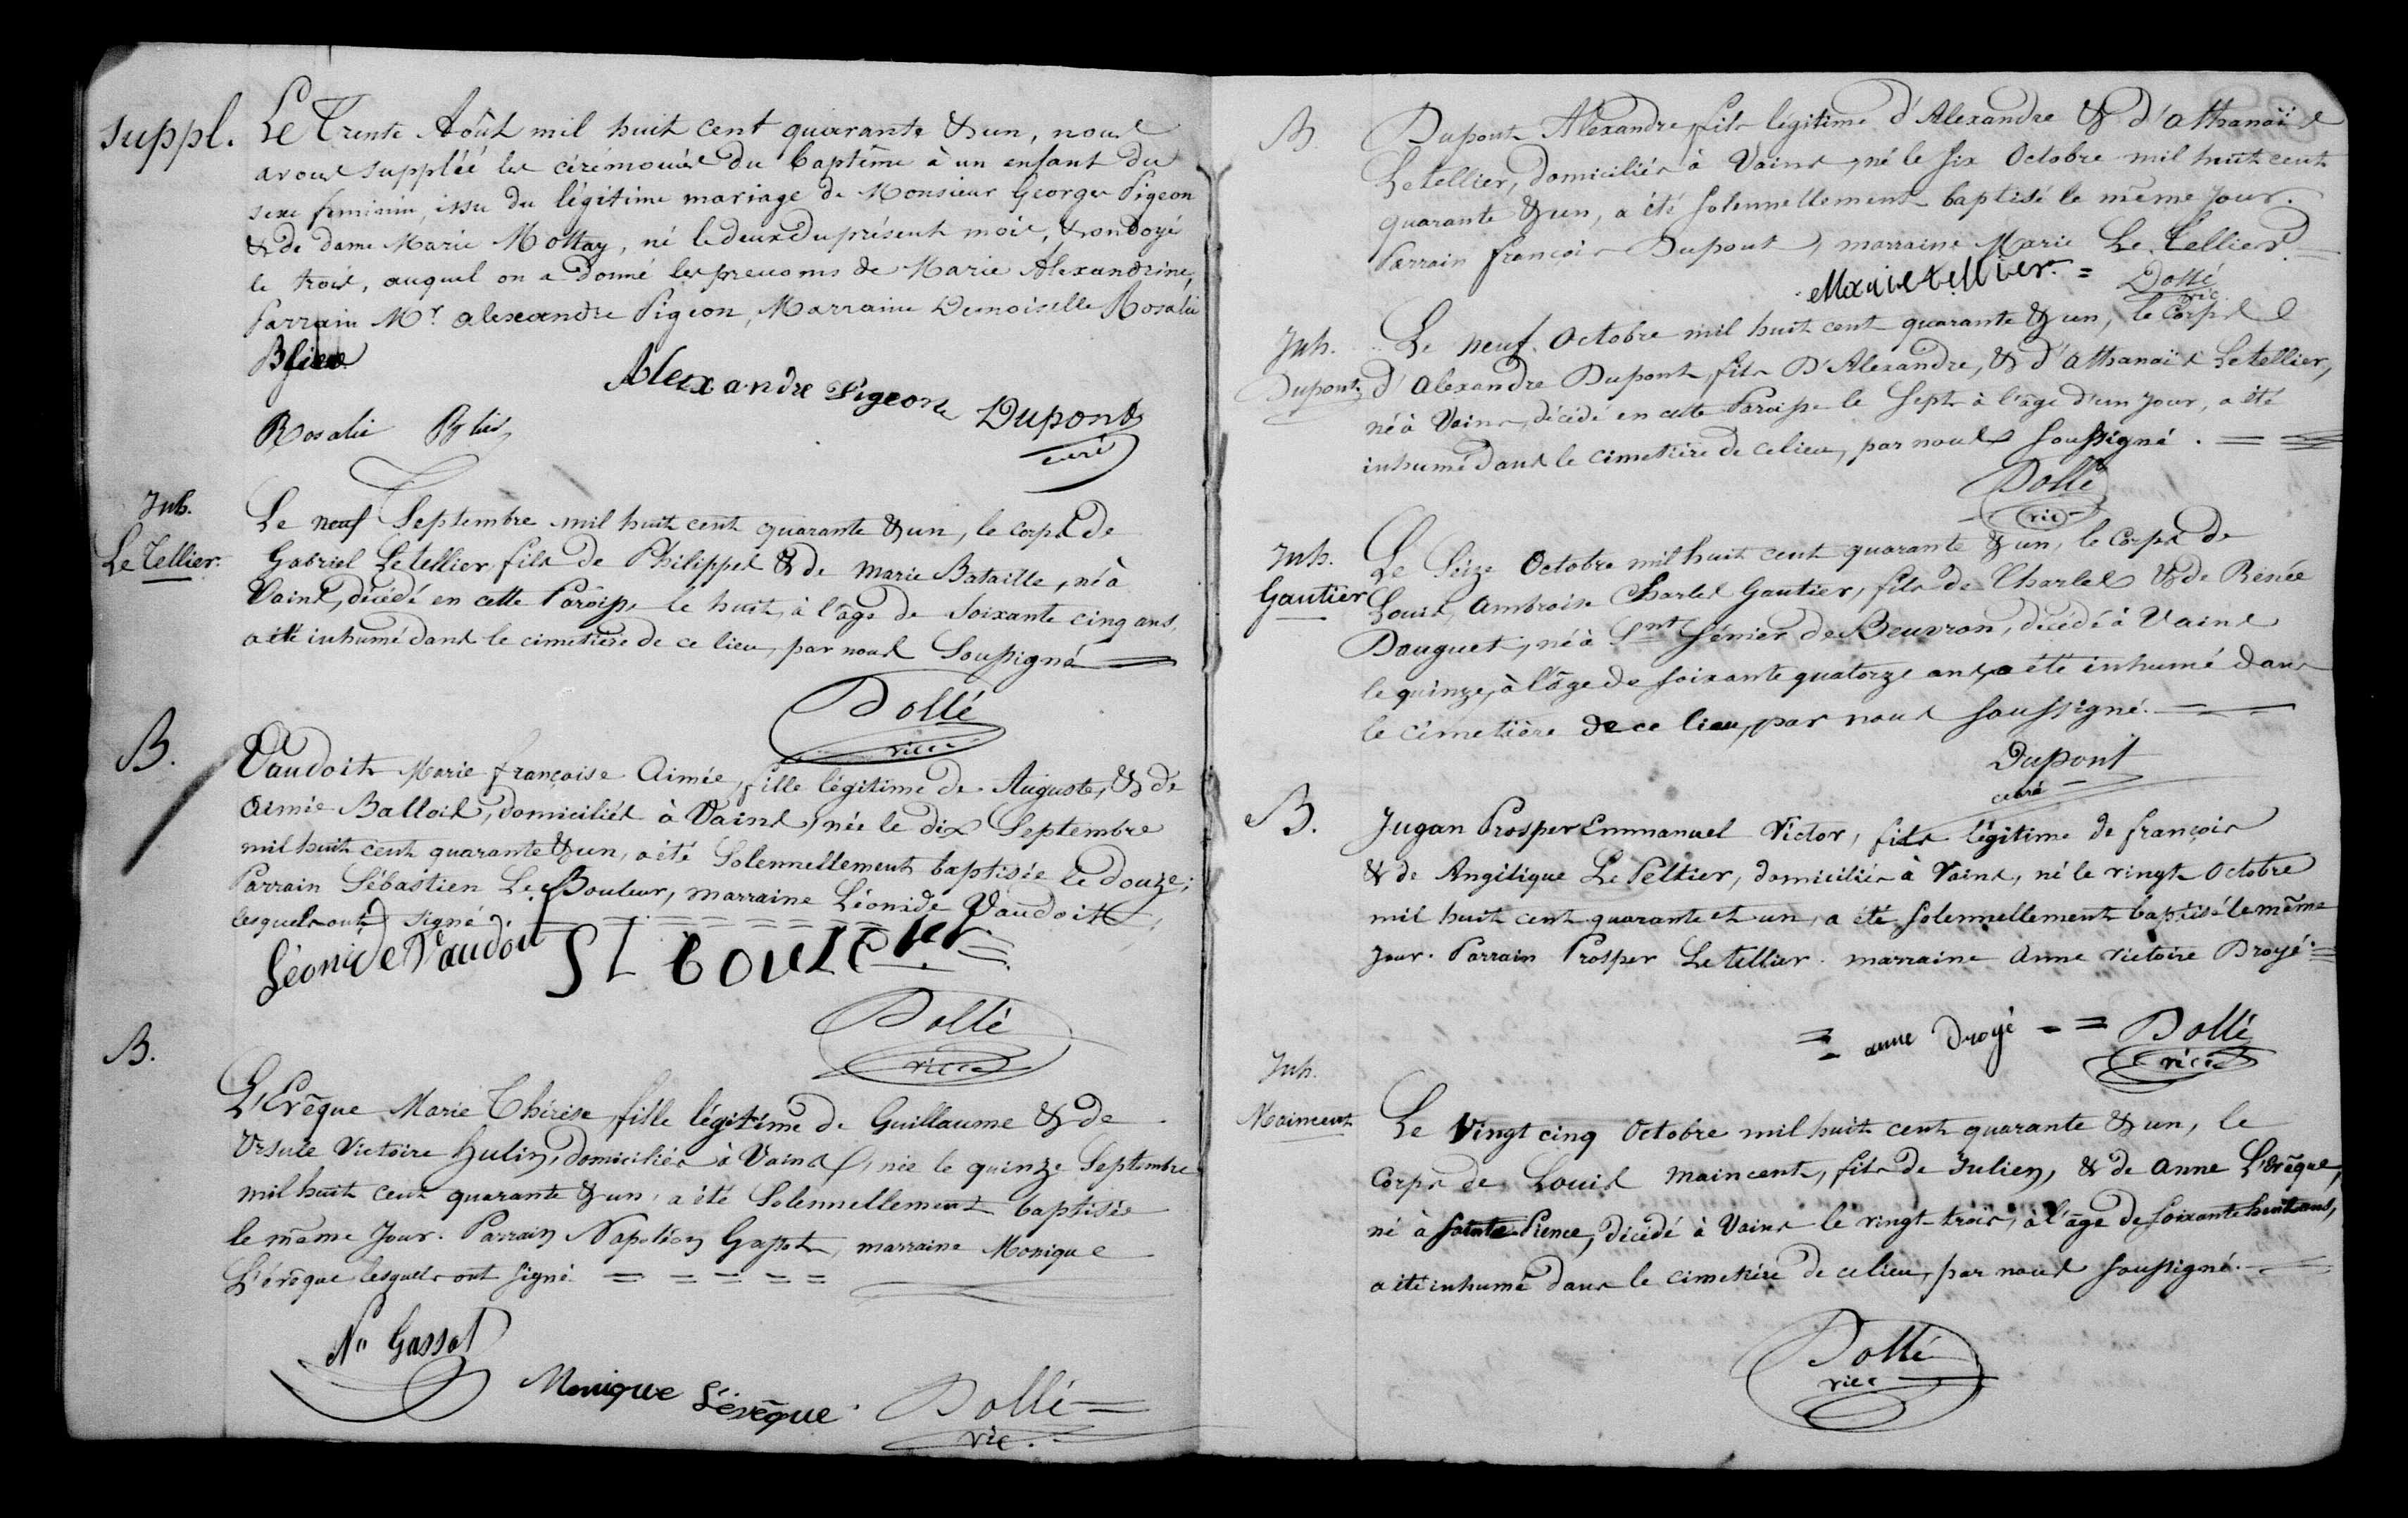 suppl.
Le Trente Août mil huit cent quarante & un, nous
avons suppléé les cérémonies du baptême à un enfant du
sexe feminin, issu du légitime mariage de Monsieur George Pigeon
& de dame Marie Mottay, né le deux du présent mois, & ondoyé
le trois, auquel on a donné les prenoms de Marie Alexandrine,
Parrain Mr. alexandre Pigeon, Marraine Demoiselle Rosalie
Alexandre Pigeon Dupont
curé
Rosalie
Inh.
Le Tellier.
Le neuf Septembre mil huit cent quarante & un, le corps de
Gabriel Letellier, fils de Philippe & de marie Bataille, né à
Vains, décédé en cette Paroisse le huit, à l'âge de Soixante cinq ans,
a été inhumé dans le cimetière de ce lieu, par nous Soussigné
Dollé
vic
B.
Vaudoit Marie françoise Aimée, fille légitime de Auguste, & de
Aimée Ballois, domiciliés à Vains, née le dix Septembre
mil huit cent quarante & un, a été Solennellement baptisée le douze;
Parrain Sébastien Le Bouleur, marraine Léonide Vaudoit,
lesquels ont signé.
Léonide Vaudoit S L bouleur
Dollé
vic
B.
L'Evêque Marie Thérèse, fille légitime de Guillaume & de
Ursule Victoire Hulin, domiciliés à Vains, née le quinze Septembre
mil huit cent quarante & un, a été Solennellement baptisée
le même Jour. Parrain Napoléon Gassot, marraine Monique
L'évêque lesquels ont signé.
Nn Gassot
Monique Lévêque. Dollé
vic.
B.
Dupont Alexandre, fils légitime d'Alexandre & d'Athanaïs
Letellier, domiciliés à Vains, né le six Octobre mil huit cent
quarante & un, a été Solennellement baptisé le même jour.
Parrain françois Dupont, marraine Marie Le Tellier.
Marie tellier = Dollé
vic.
Inh.
Dupont
Le neuf. Octobre mil huit cent quarante & un, le Corps
d'Alexandre Dupont, fils D'Alexandre, & d'Athanaïs Letellier,
né à Vains, décédé en cette Paroisse le Sept à l'âge d'un jour, a été
inhumé dans le cimetière de ce lieu, par nous Soussigné.
Dollé
vic
Inh.
Gautier
Le Seize Octobre mil huit cent quarante & un, le Corps de
Louis Ambroise Charles Gautier, fils de Charles & de Renée
Douguet, né à Snt Sénier de Beuvron, décédé à Vains
le quinze, à l'âge de soixante quatorze ans, a été inhumé dans
le cimetière de ce lieu, par nous soussigné.
Dupont
curé
B.
Jugan Prosper Emmanuel Victor, fils légitime de françois
& de Angélique Le Peltier, domiciliés à Vains, né le vingt Octobre
mil huit cent quarante et un, a été Solennellement baptisé le même
Jour. Parrain Prosper Letellier. marraine Anne Victoire Droyé.
anne Droyé Dollé
vic
Inh.
Maincent
Le Vingt cinq Octobre mil huit cent quarante & un, le
Corps de Louis Maincent, fils de Julien, & de Anne L'Evêque,
né à Sainte Pience, décédé à Vains le vingt-trois, à l'âge de soixante huit ans,
a été inhumé dans le cimetière de ce lieu, par nous soussigné.
Dollé
vic